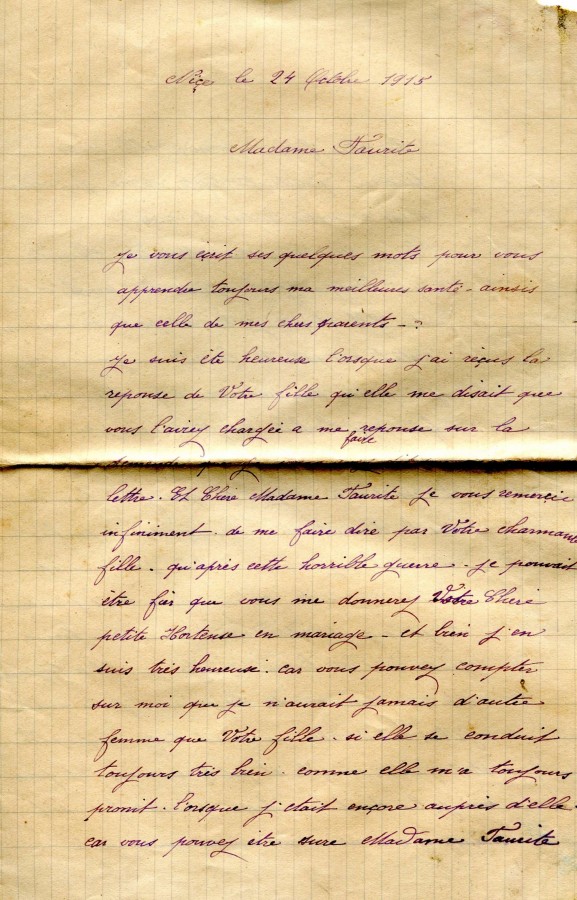 Nice le 24 Octobre 1915
Madame Taurite
Je vous écrit ses quelques mots pour vous
apprendre toujours ma meilleures santé - ainsis
que celle de mes chers parents - ?
Je suis éte heureuse l'orsque j'ai reçus la
reponse de Votre fille qu'elle me disait que
vous l'aviez chargée a me faire reponse sur la
demande
lettre. Et Chère Madame Taurite je vous remercie
infiniment. de me faire dire par Votre charmante
fille - qu'après cette horrible guerre - je pouvait
être fiér que vous me donnerez Votre Cheré
petite Hortense en mariage - et bien j'en
suis très heureuse. car vous pouvez compter
sur moi que je n'aurait jamais d'autre
femme que Votre fille - si elle se conduit
toujours très bien. comme elle m'a toujours
promit. l'orsque j'etait encore auprès d'elle -
car vous pouvez être sure Madame Taurite